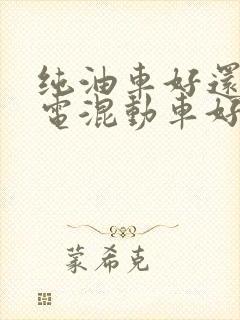 纯油車好還
電混動車好
蒙希克